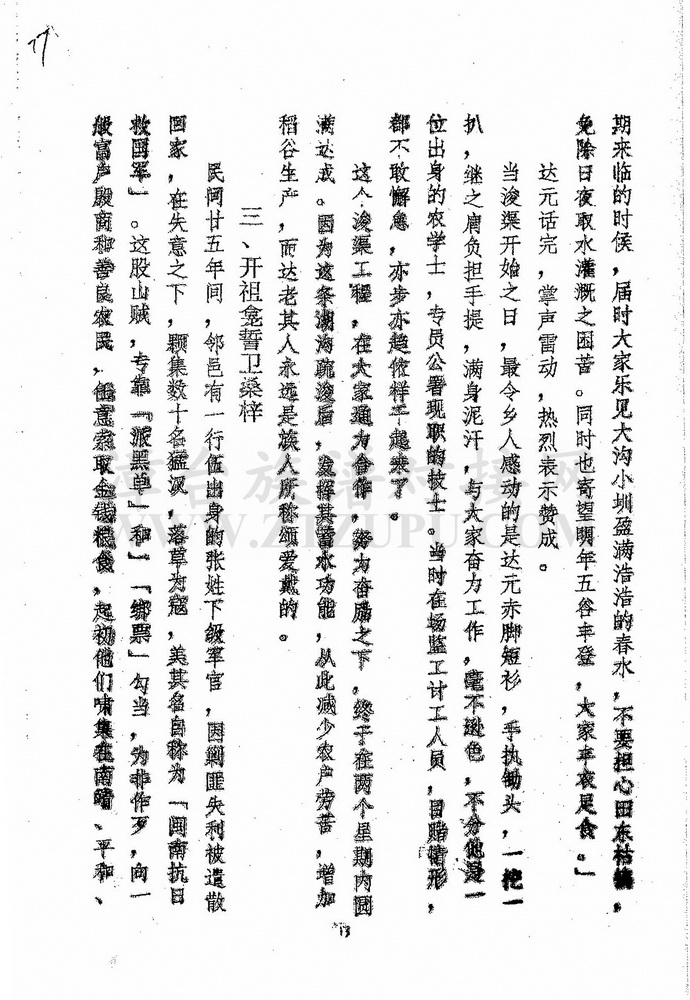 期来临的时侯，届时大家乐见大沟小圳盈满浩浩的春水，不要担心田东枯槁，
免除日夜取水灌溉之困苦。同时也寄望明年五谷丰登，大家丰衣足食。」
达元话完，掌声雷动，热烈表示赞成。
当浚渠开始之日，最令乡人感动的是达元赤脚短衫，手执锄头，一挖一
扒，继之肩负担手提，满身泥汗，与大家奋力工作，毫不逊色，不分他是一
位出身的农学士，专员公署现职的技士。当时在场监工计工人员，目睹情形，
都不敢懈怠，亦步亦趋依样干起来了。
这个浚渠工程，在大家通力合作，努力奋励之下，终于在两个星期内圆
满达成。因为这条湖沟疏浚后，发挥其蓄水功能，从此减少农户劳苦，增加
稻谷生产，而达老其人永远是族人所称颂爱戴的。
三、开祖龛誓卫桑梓
民国廿五年间，邻邑有一行伍出身的张姓下级军官，因剿匪失利被遣散
回家，在失意之下，颗集数十名猛汉，落草为寇，美其名自称为「闽南抗日
救国军」。这股山贼，专靠「派黑单」和「绑票」勾当，为非作歹，向一
般富户殷商和善良农民，任意索取金钱粮食，起初他们啸集在南靖、平和、
13
综合族谱对接网
WWW.ZHZUPU.COM